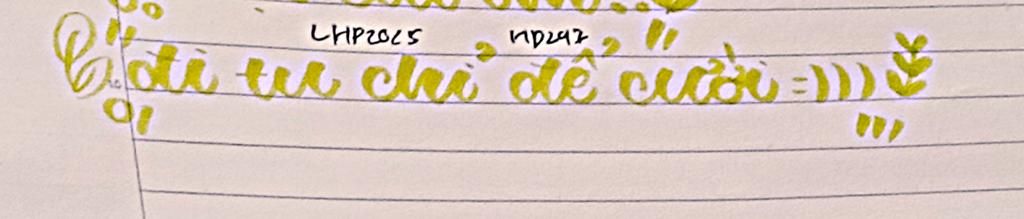 LHP2025 HD247
đi tu chỉ để cười =))))